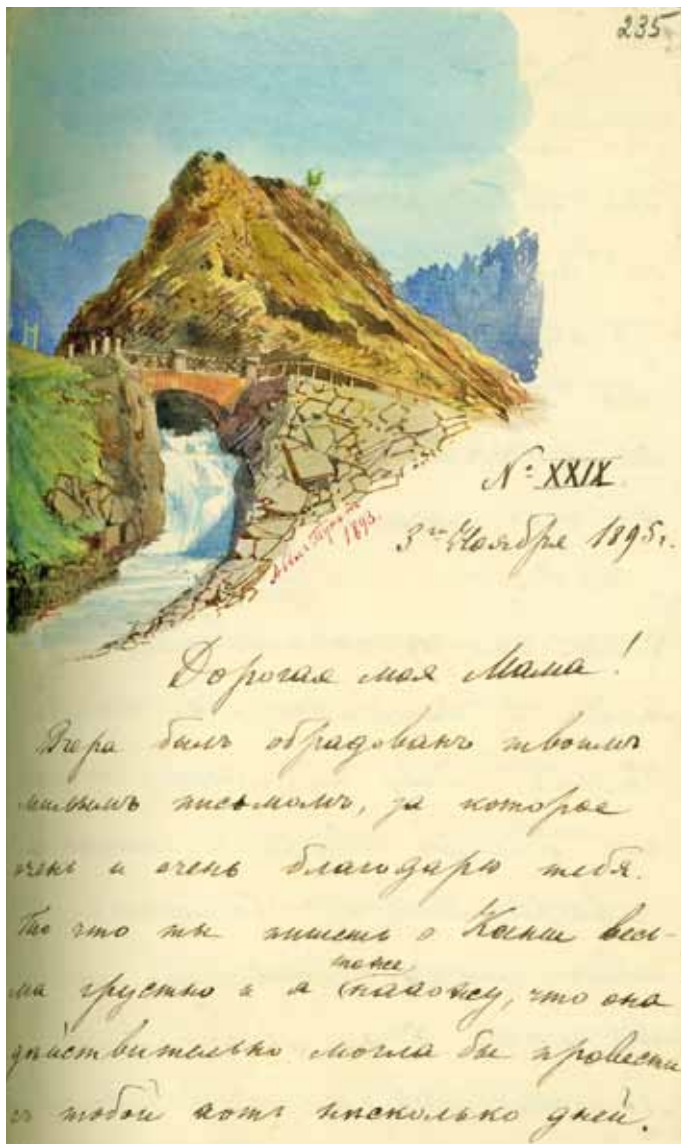 235
№ XXIX
3го Ноября 1895 г.
Аббасъ Туманъ
1893.
Дорогая моя Мама!
Вчера былъ обрадованъ твоимъ
милымъ письмомъ, за которое
очень и очень благодарю тебя.
То что ты пишешь о Ксеніи весь-
ма грустно и я тоже нахожу, что она
дѣйствительно могла бы провести
съ тобой хоть нѣсколько дней.